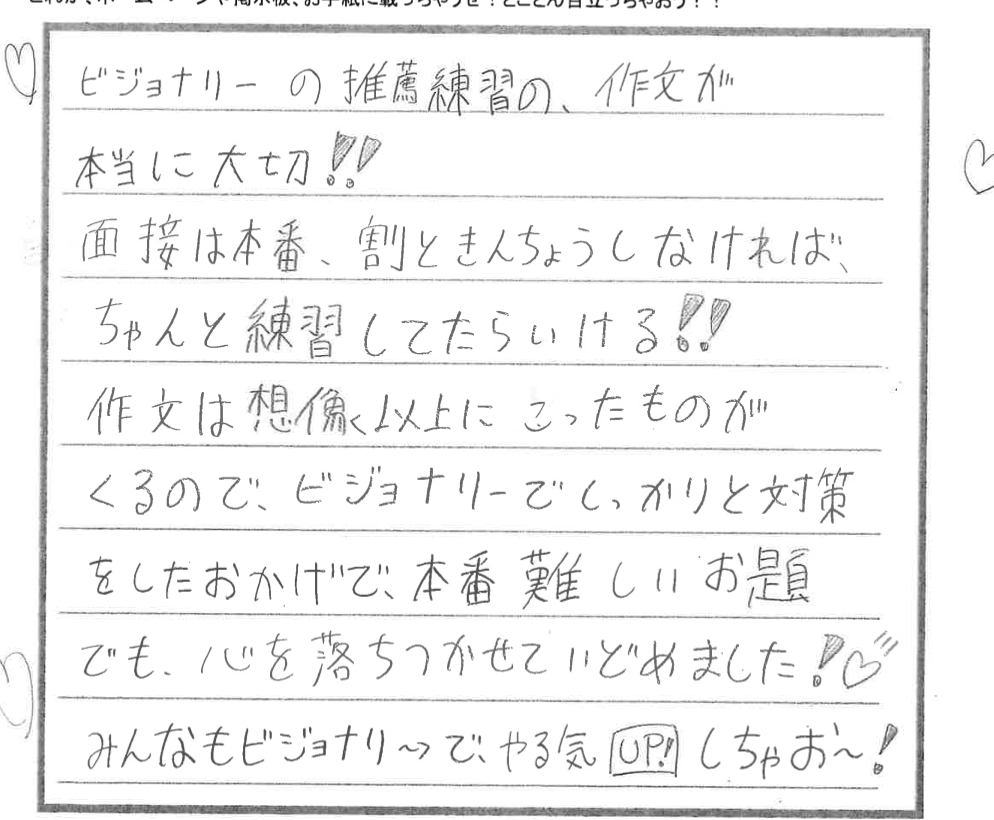 ビジョナリーの推薦練習の、作文が
本当に大切!!
面接は本番、割ときんちょうしなければ、
ちゃんと練習してたらいける!!
作文は想像以上にこったものが
くるので、ビジョナリーでしっかりと対策
をしたおかげで、本番難しいお題
でも、心を落ちつかせていどめました!♡
みんなもビジョナリ〜で、やる気UP!しちゃお〜!